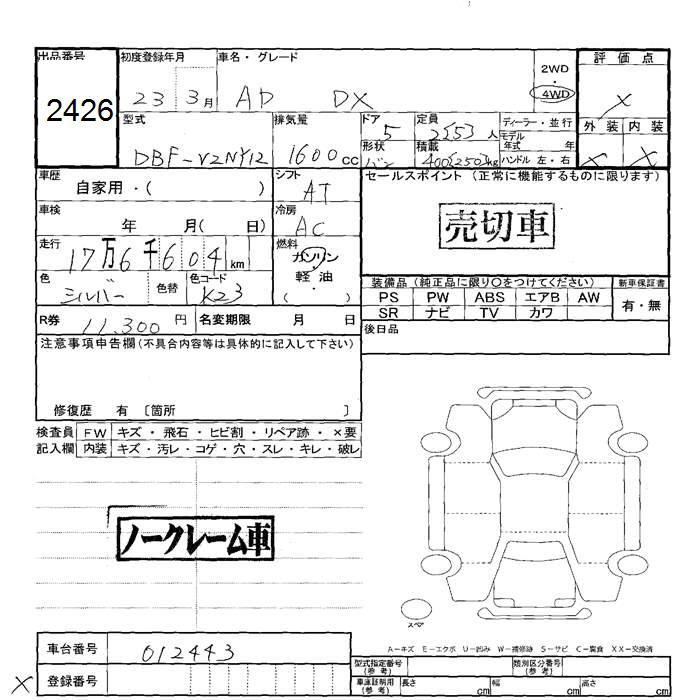 出品番号
2426
初度登録年月
23 3月
車名・グレード
AD DX
2WD
4WD
評価点
X
外装 内装
X X
型式
DBF-VZNY12
排気量
1600cc
ドア
5
定員
2(5)人
ディーラー・並行
モデル年式 年
形状
バン
積載
400(250)kg
ハンドル 左・右
車歴
自家用・( )
シフト
AT
セールスポイント (正常に機能するものに限ります)
売切車
車検
年 月( 日)
冷房
AC
走行
17万6千604km
燃料
ガソリン
軽油
( )
色
シルバー
色替
色コード
K23
装備品 (純正品に限り○をつけてください)
新車保証書
PS PW ABS エアB AW
有・無
SR ナビ TV カワ
R券 11,300円
名変期限 月 日
後日品
注意事項申告欄(不具合内容等は具体的に記入して下さい)
修復歴 有 〔箇所 〕
検査員 FW キズ・飛石・ヒビ割・リペア跡・×要
記入欄 内装 キズ・汚レ・コゲ・穴・スレ・キレ・破レ
ノークレーム車
スペア
A-キズ E-エクボ U-凹み W-補修跡 S-サビ C-腐食 XX-交換済
車台番号 012443
型式指定番号(参考)
類別区分番号(参考)
X
登録番号
車庫証明用(参考) 長さ cm 幅 cm 高さ cm